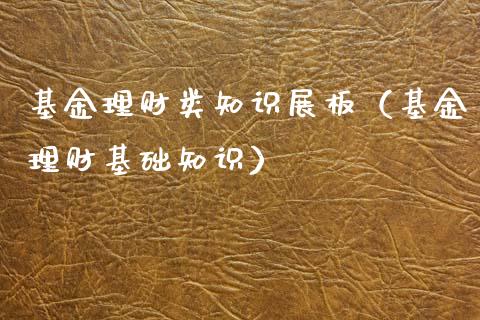 基金理财类知识展板（基金
理财基础知识）